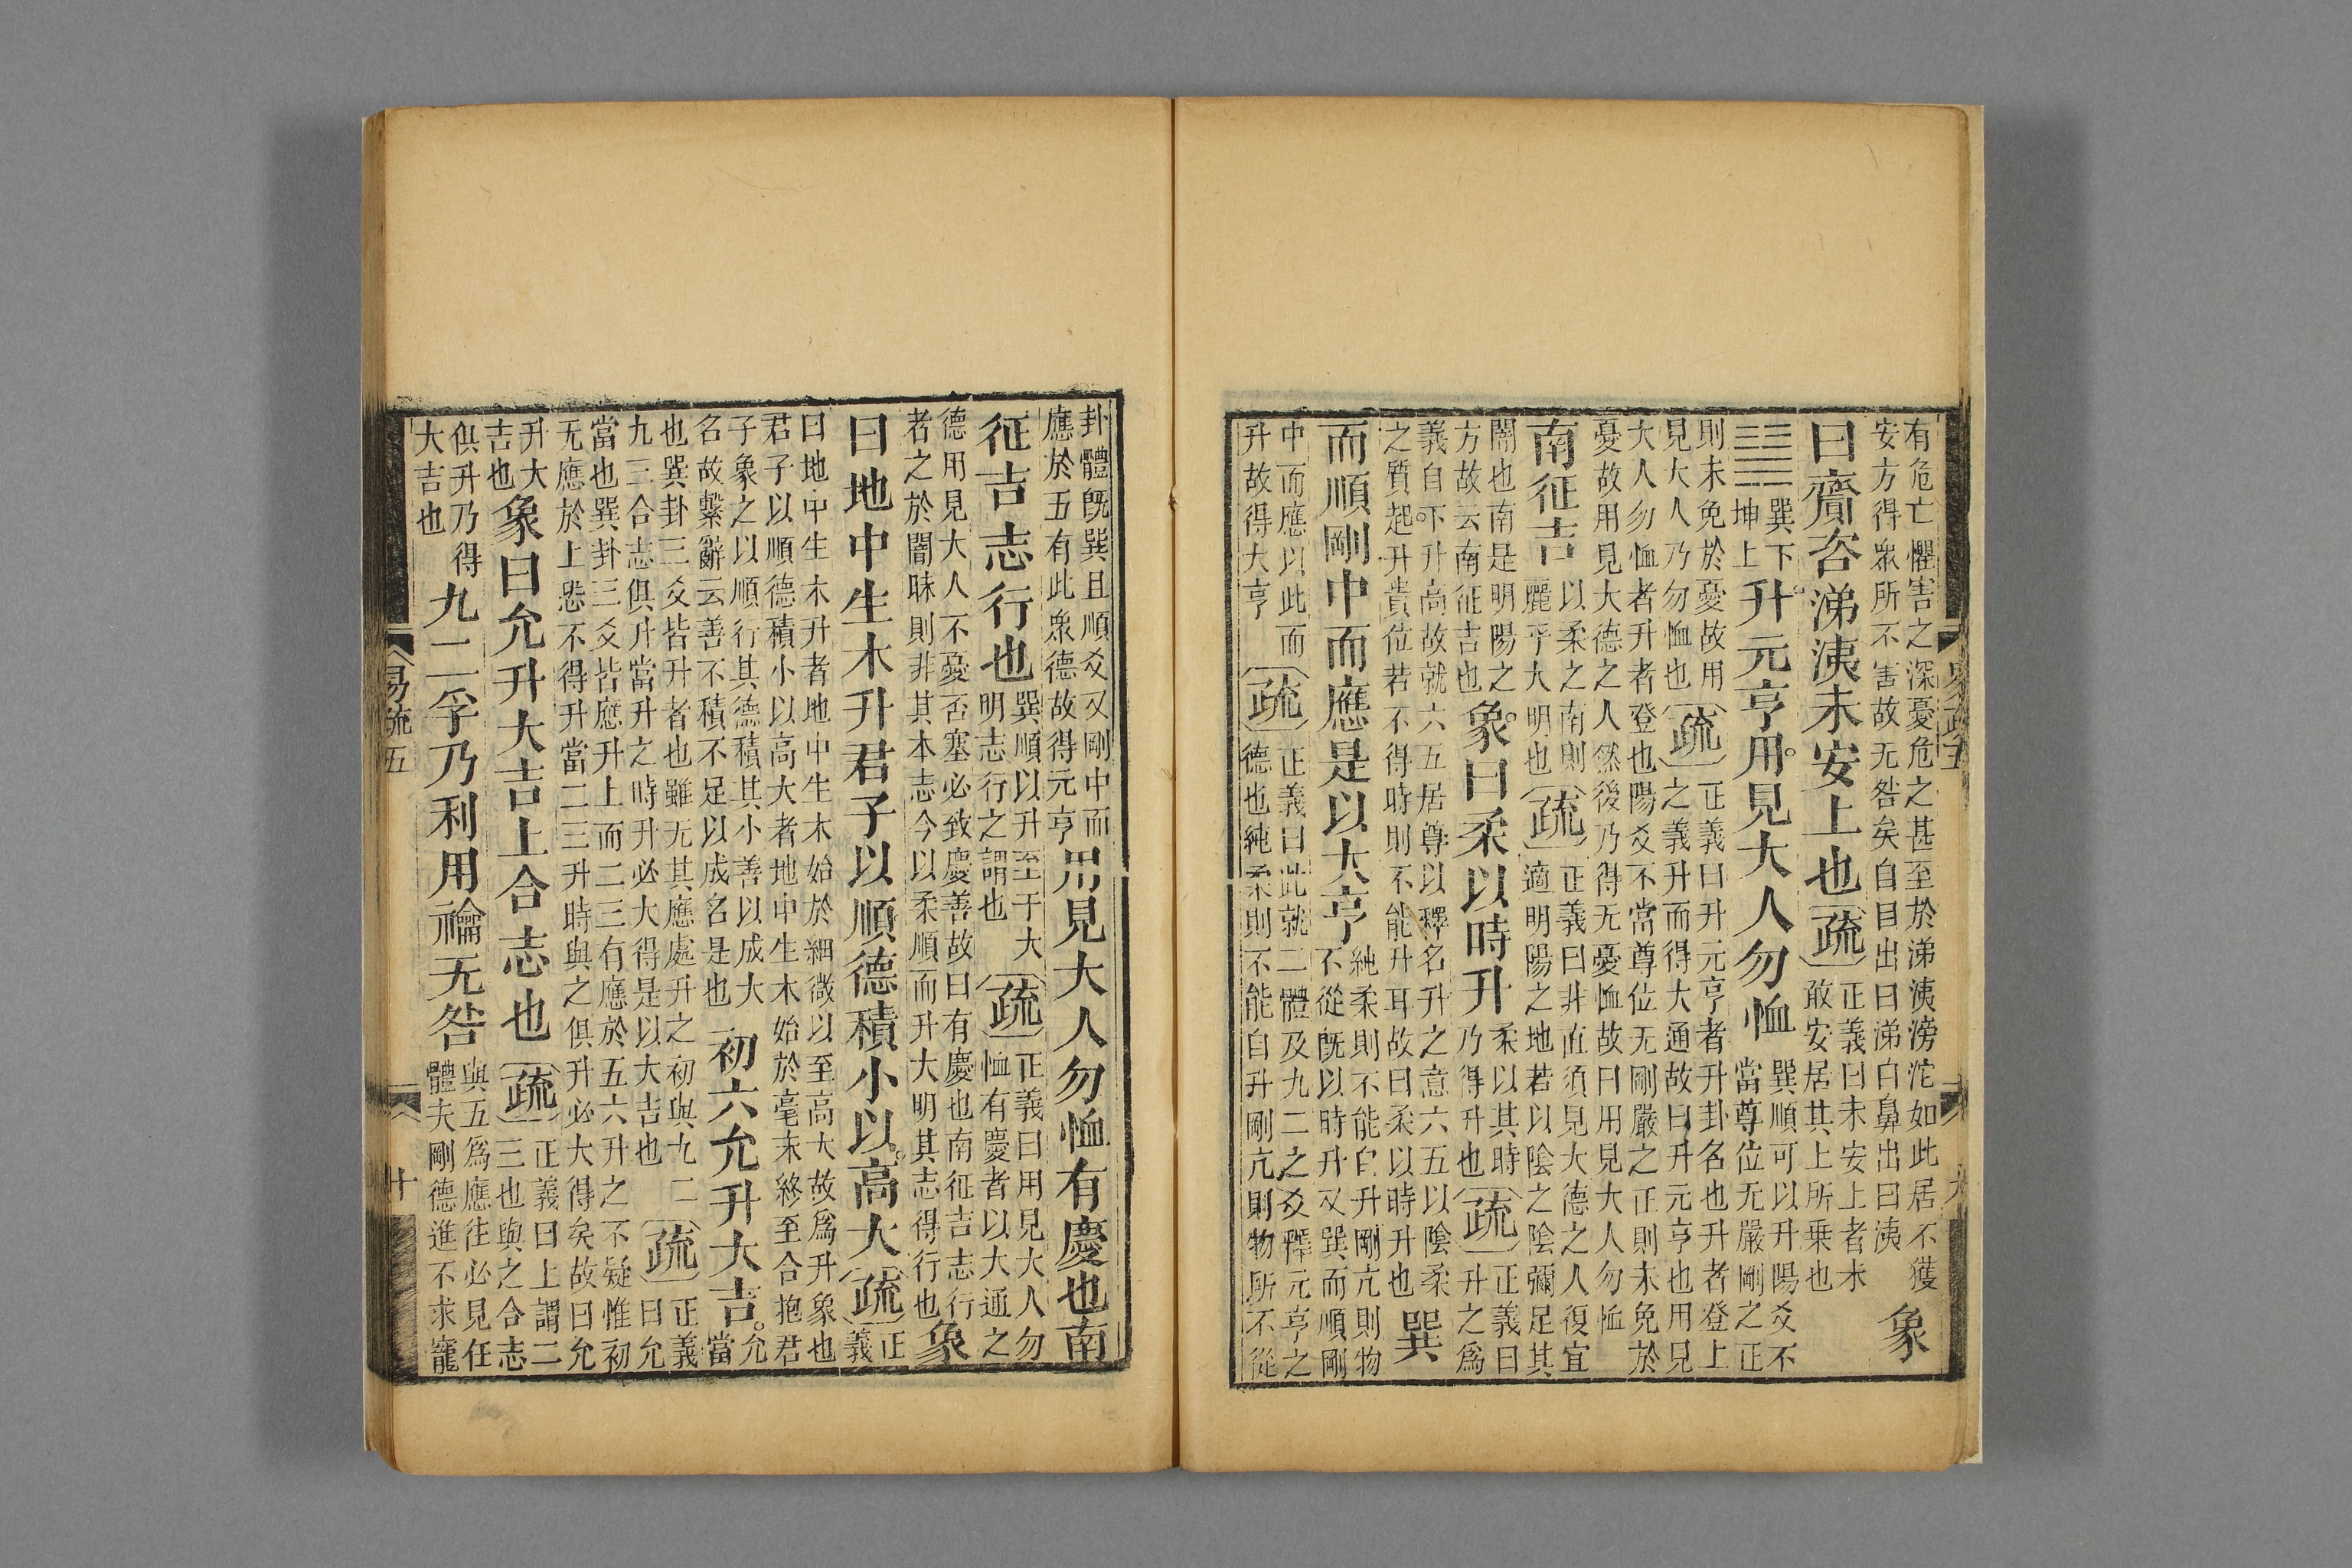 有危亡懼害之深憂危之甚至於涕洟滂沱如此居不獲
安方得眾所不害故无咎矣自目出曰涕自鼻出曰洟
象
曰齎咨涕洟未安上也
疏
正義曰未安上者未
敢安居其上所乗也
䷭
巽下
坤上
升元亨用見大人勿恤
巽順可以升陽爻不
當尊位无嚴剛之正
則未免於憂故用
見大人乃勿恤也
疏
正義曰升元亨者升卦名也升者登上
之義升而得大通故曰升元亨也用見
大人勿恤者升者登也陽爻不當尊位无剛嚴之正則未免於
憂故用見大德之人然後乃得无憂恤故曰用見大人勿恤
南征吉
以柔之南則
麗乎大明也
疏
正義曰非直須見大德之人復宜
適明陽之地若以陰之陰彌足其
闇也南是明陽之
方故云南征吉也
象曰柔以時升
柔以其時
乃得升也
疏
正義曰
升之爲
義自下升高故就六五居尊以釋名升之意六五以陰柔
之質起升貴位若不得時則不能升耳故曰柔以時升也
巽
而順剛中而應是以大亨
純柔則不能自升剛亢則物
不從既以時升又巽而順剛
中而應以此而
升故得大亨
疏
正義曰此就二體及九二之爻釋元亨之
德也純柔則不能自升剛亢則物所不從
卦體既巽且順爻又剛中而
應於五有此眾德故得元亨
用見大人勿恤有慶也南
征吉志行也
巽順以升至于大
明志行之謂也
疏
正義曰用見大人勿
恤有慶者以大通之
德用見大人不憂否塞必致慶善故曰有慶也南征吉志行
者之於闇昧則非其本志今以柔順而升大明其志得行也
象
曰地中生木升君子以順德積小以高大
疏
正
義
曰地中生木升者地中生木始於細微以至高大故爲升象也
君子以順德積小以高大者地中生木始於毫末終至合抱君
子象之以順行其德積其小善以成大
名故繫辭云善不積不足以成名是也
初六允升大吉
允
當
也巽卦三爻皆升者也雖无其應處升之初與九二
九三合志俱升當升之時升必大得是以大吉也
疏
正義
曰允
當也巽卦三爻皆應升上而二三有應於五六升之不疑惟初
无應於上恐不得升當二三升時與之俱升必大得矣故曰允
升大
吉也
象曰允升大吉上合志也
疏
正義曰上謂二
三也與之合志
俱升乃得
大吉也
九二孚乃利用禴无咎
與五爲應往必見任
體夫剛德進不求寵
易疏五
十